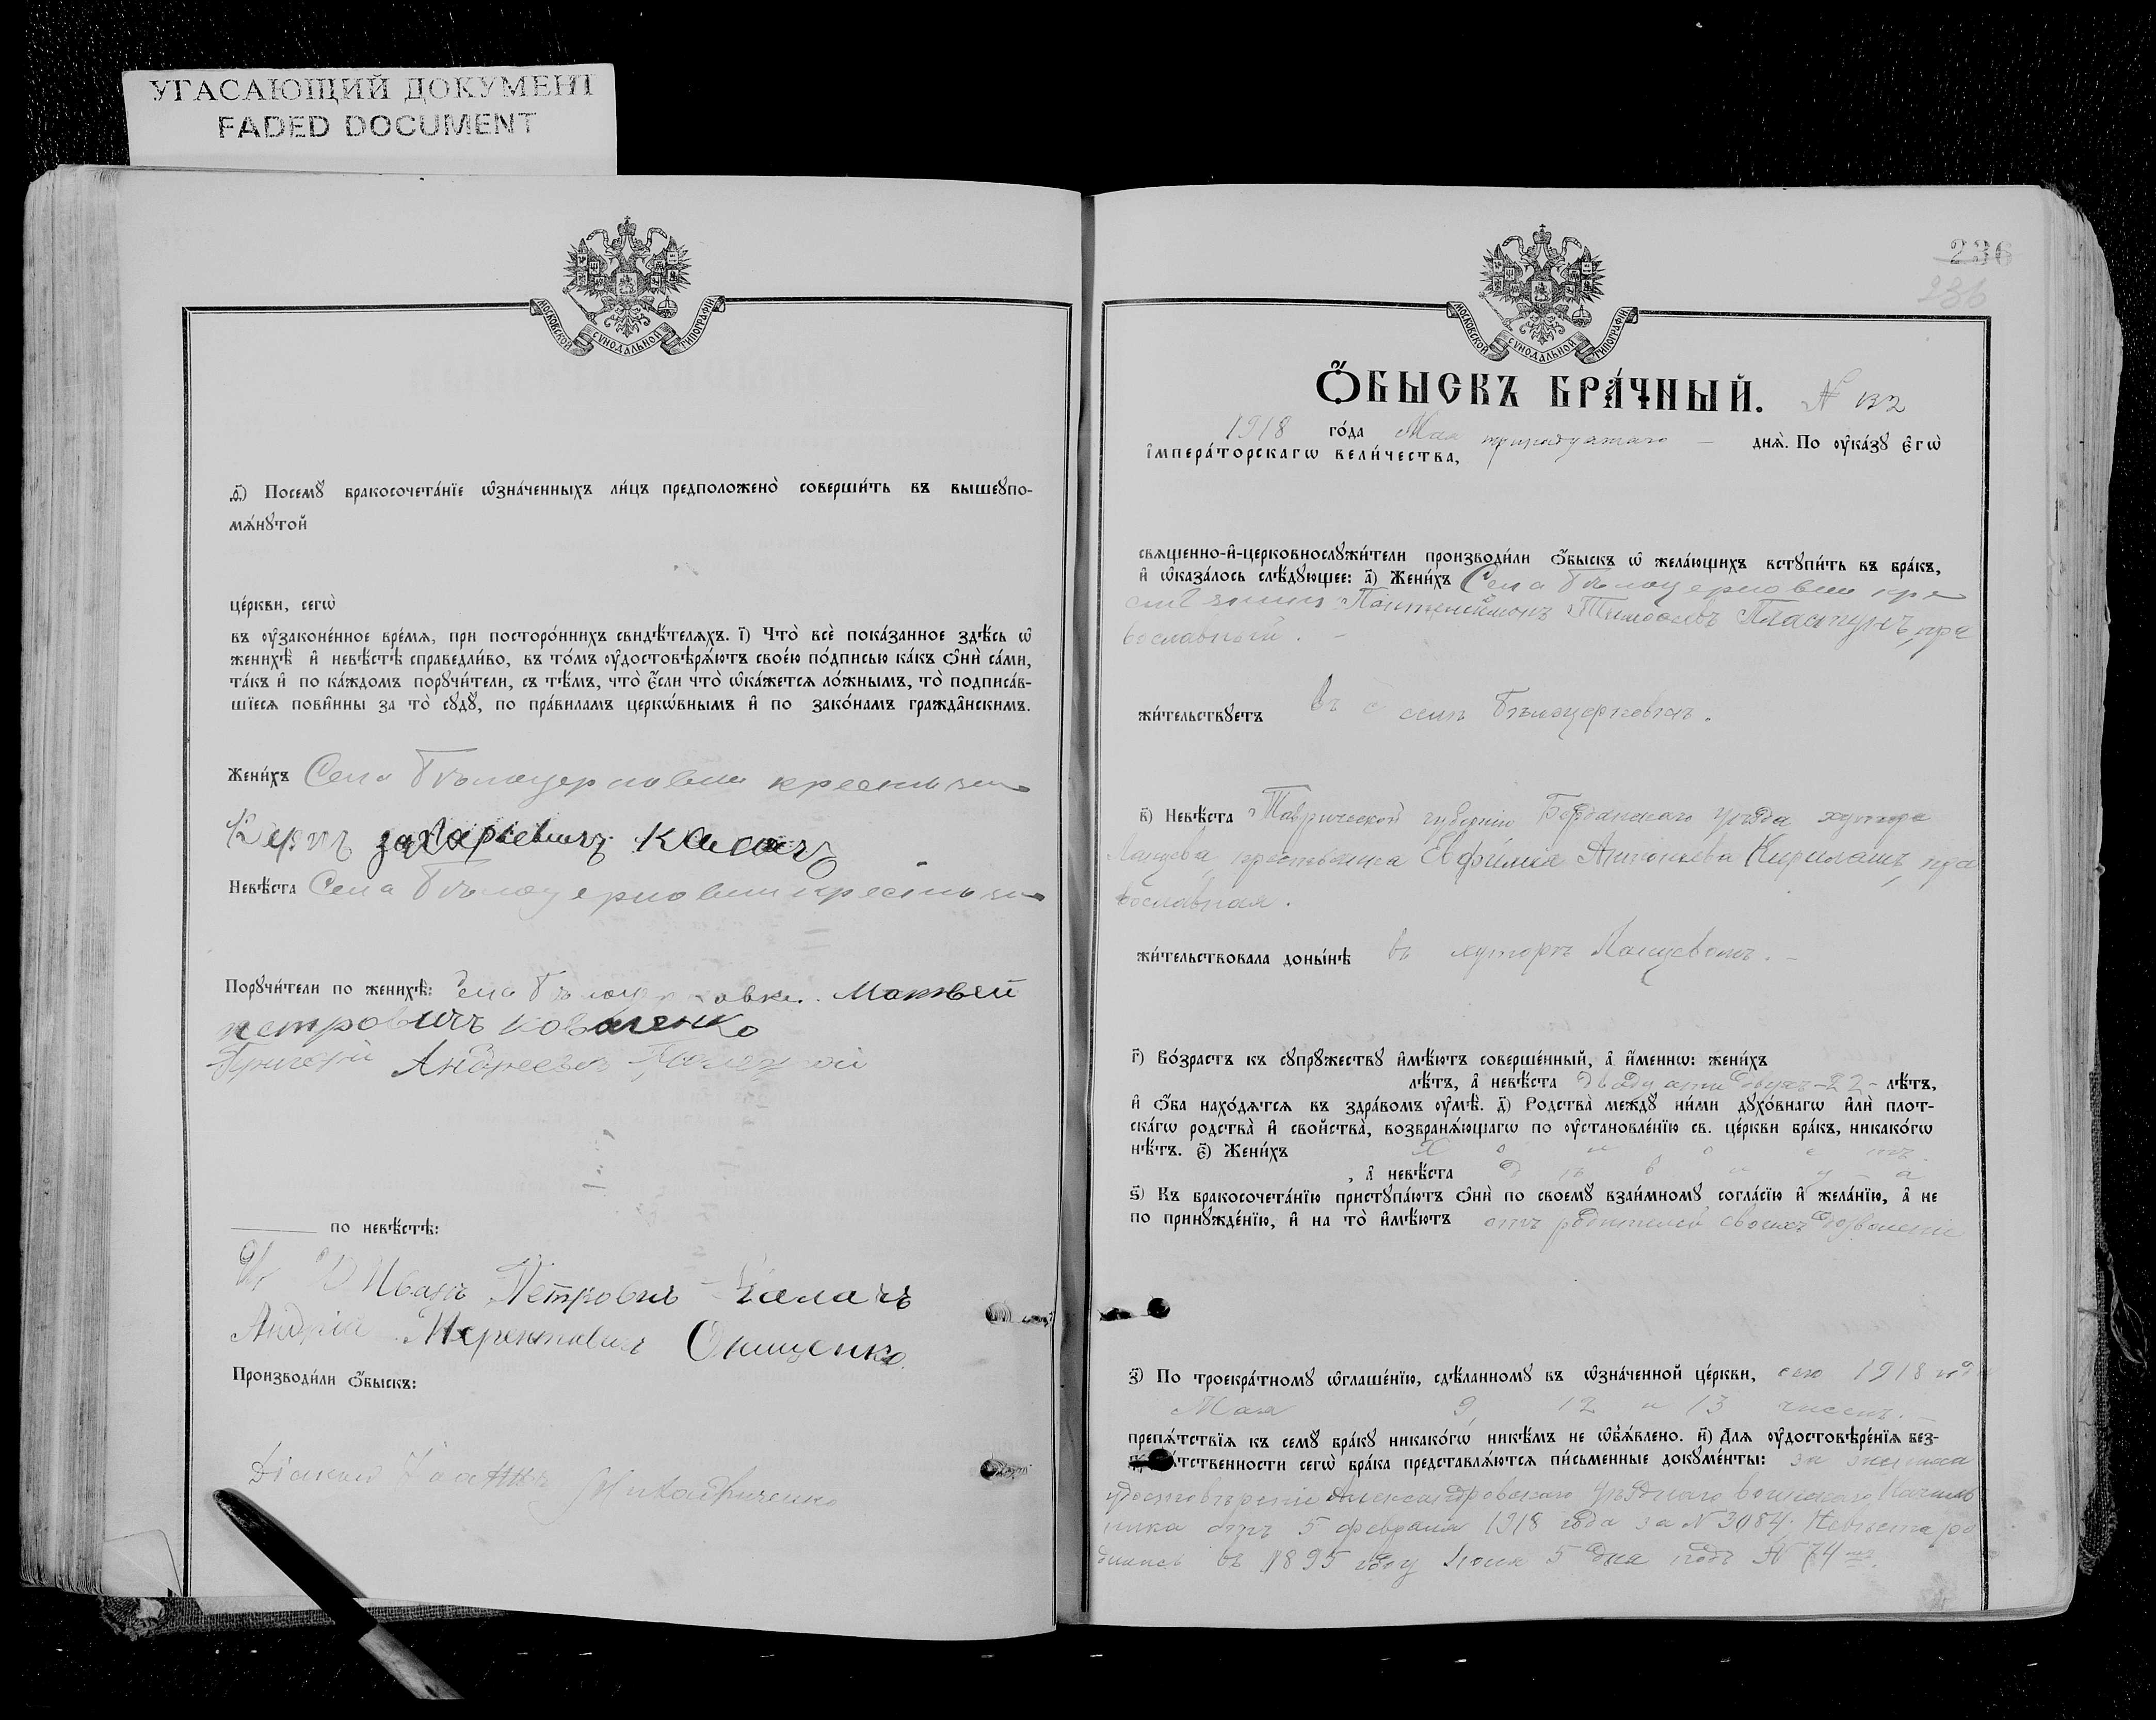 УГАСАЮЩИЙ ДОКУМЕНТ
FADED DOCUMENT
МОСКОВСКОЙ СѴНОДАЛЬНОЙ ТИПОГРАФІИ
ѳ҃) Посемꙋ̀ бракосочета́нїе ѡ҆зна́ченныхъ ли́цъ предположено̀ соверши́ть въ вышеꙋпо-
мѧ́нꙋтой
це́ркви, сегѡ̀
въ ᲂу҆законе́нное вре́мѧ, при посторо́ннихъ свидѣ́телѧхъ. і҃) Что̀ всѐ пока́занное здѣ́сь ѡ҆
женихѣ̀ и҆ невѣ́стѣ справедли́во, въ то́мъ ᲂу҆достовѣрѧ́ютъ свое́ю по́дписью ка́къ ѻ҆нѝ са́ми,
та́къ и҆ по ка́ждомъ порꙋчи́тели, съ тѣ́мъ, что̀ є҆́сли что̀ ѡ҆ка́жетсѧ ло́жнымъ, то̀ подписа́в-
шїесѧ пови́нны за то̀ сꙋдꙋ̀, по пра́виламъ церкѡ́внымъ и҆ по зако́намъ гражда̑нскимъ.
Жени́хъ Села Бѣлоцерковки крестьянинъ
захарѣевичъ Калачъ
Невѣ́ста Села Бѣлоцерковки крестьян
Порꙋчи́тели по женихѣ̀: Села Бѣлоцерковки Матвей
петровичъ коваленко
Григорій Андреевъ
по невѣ́стѣ:
Иванъ Петровичъ Калачъ
Андрій Терентиевич Онищенко
Производи́ли ѻ҆́быскъ:
Діаконъ Іоаннъ
236
236
МОСКОВСКОЙ СѴНОДАЛЬНОЙ ТИПОГРАФІИ
Ѻ҆́БЫСКЪ БРА́ЧНЫЙ. № 132
1918 го́да Мая тринадцатаго – днѧ̀. По ᲂу҆ка́зꙋ є҆гѡ̀
і҆мпера́торскагѡ вели́чества,
свѧщенно-и҆-церковнослꙋжи́тели производи́ли ѻ҆́быскъ ѡ҆ жела́ющихъ встꙋпи́ть въ бра́къ,
и҆ ѡ҆каза́лось слѣ́дꙋющее: а҃) Жени́хъ Села Бѣлоцерковки кре
стьянинъ Пантелеймонъ Тимофеевъ Пластунъ, пра
вославный. –
жи́тельствꙋетъ въ с селѣ Бѣлоцерковкѣ.
в҃) Невѣ́ста Таврической губерніи Бердянскаго уѣзда хутора
крестьянка Евфимія Антоньева Кирилашъ, пра
вославная.
жи́тельствовала доны́нѣ въ хуторѣ
г҃) Во́зрастъ къ сꙋпрꙋ́жествꙋ и҆мѣ́ютъ соверше́нный, а҆ и҆́меннѡ: жени́хъ
лѣ́тъ, а҆ невѣ́ста двадцати двухъ – 22 – лѣ́тъ,
и҆ ѻ҆́ба нахо́дѧтсѧ въ здра́вомъ ᲂу҆мѣ̀. д҃) Родства̀ междꙋ̀ ни́ми дꙋхо́внагѡ и҆лѝ плот-
ска́гѡ родства̀ и҆ сво́йства, возбранѧ́ющагѡ по ᲂу҆становле́нїю св. це́ркви бра́къ, никако́гѡ
нѣ́тъ. є҃) Жени́хъ Холостъ
, а҆ невѣ́ста дѣвица
ѕ҃) Къ бракосочета́нїю пристꙋпа́ютъ ѻ҆нѝ по своемꙋ̀ взаи́мномꙋ согла́сїю и҆ жела́нїю, а҆ не
по принꙋжде́нїю, и҆ на то̀ и҆мѣ́ютъ отъ родителей своихъ дозволеніе
з҃) По троекра́тномꙋ ѡ҆глаше́нїю, сдѣ́ланномꙋ въ ѡ҆зна́ченной це́ркви, сего 1918 года
Мая 9, 12 и 13 чиселъ. –
препѧ́тствїѧ къ семꙋ̀ бра́кꙋ никако́гѡ никѣ́мъ не ѡ҆б̾ѧ́влено. и҃) Длѧ ᲂу҆достовѣре́нїѧ без-
пренѧ́тственности сегѡ̀ бра́ка представлѧ́ютсѧ пи́сьменные докꙋме́нты: за жениха
удостовѣреніе Александровскаго Уѣзднаго воинскаго Началь
ника отъ 5 февраля 1918 года за № 3084. Невѣста ро
дилась въ 1895 году 5 дня подъ № 74